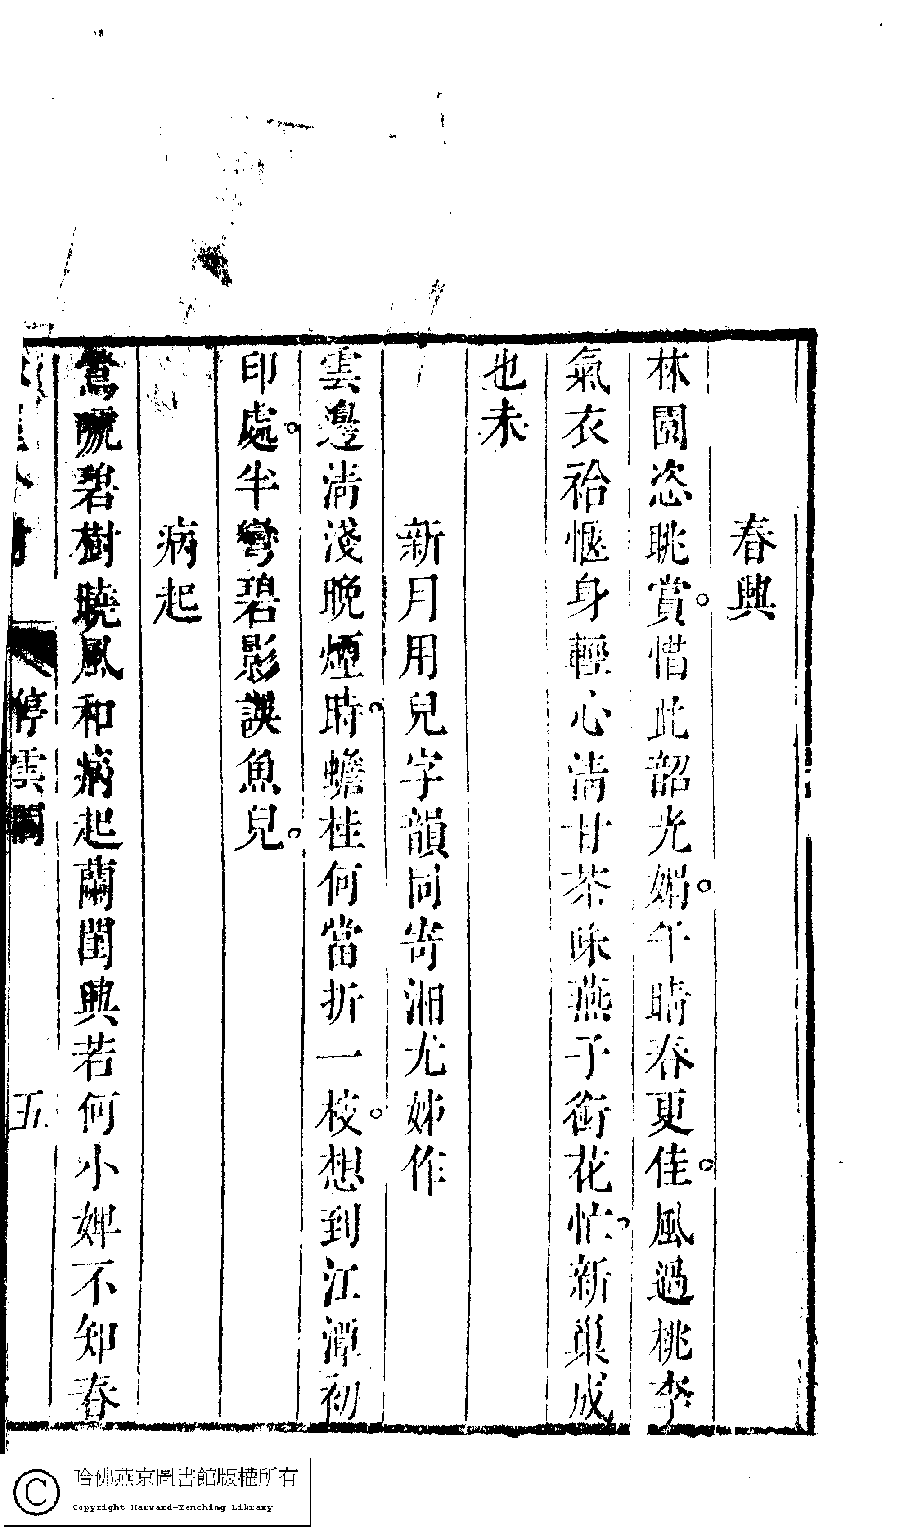 春興
林園恣眺賞惜此韶光娟午晴春更佳風過桃李
氣衣袷愜身輕心清甘茶味燕子銜花忙新巢成
也未
新月用兒字韻同寄湘尤姊作
雲邊清淺晚煙時蟾桂何當折一枝想到江潭初
印處半彎碧影誤魚兒
病起
鶯啼碧樹曉風和病起蘭閨興若何小婢不知春
停雲閣
五
哈佛燕京圖書館版權所有
Copyright Harvard-Yenching Library